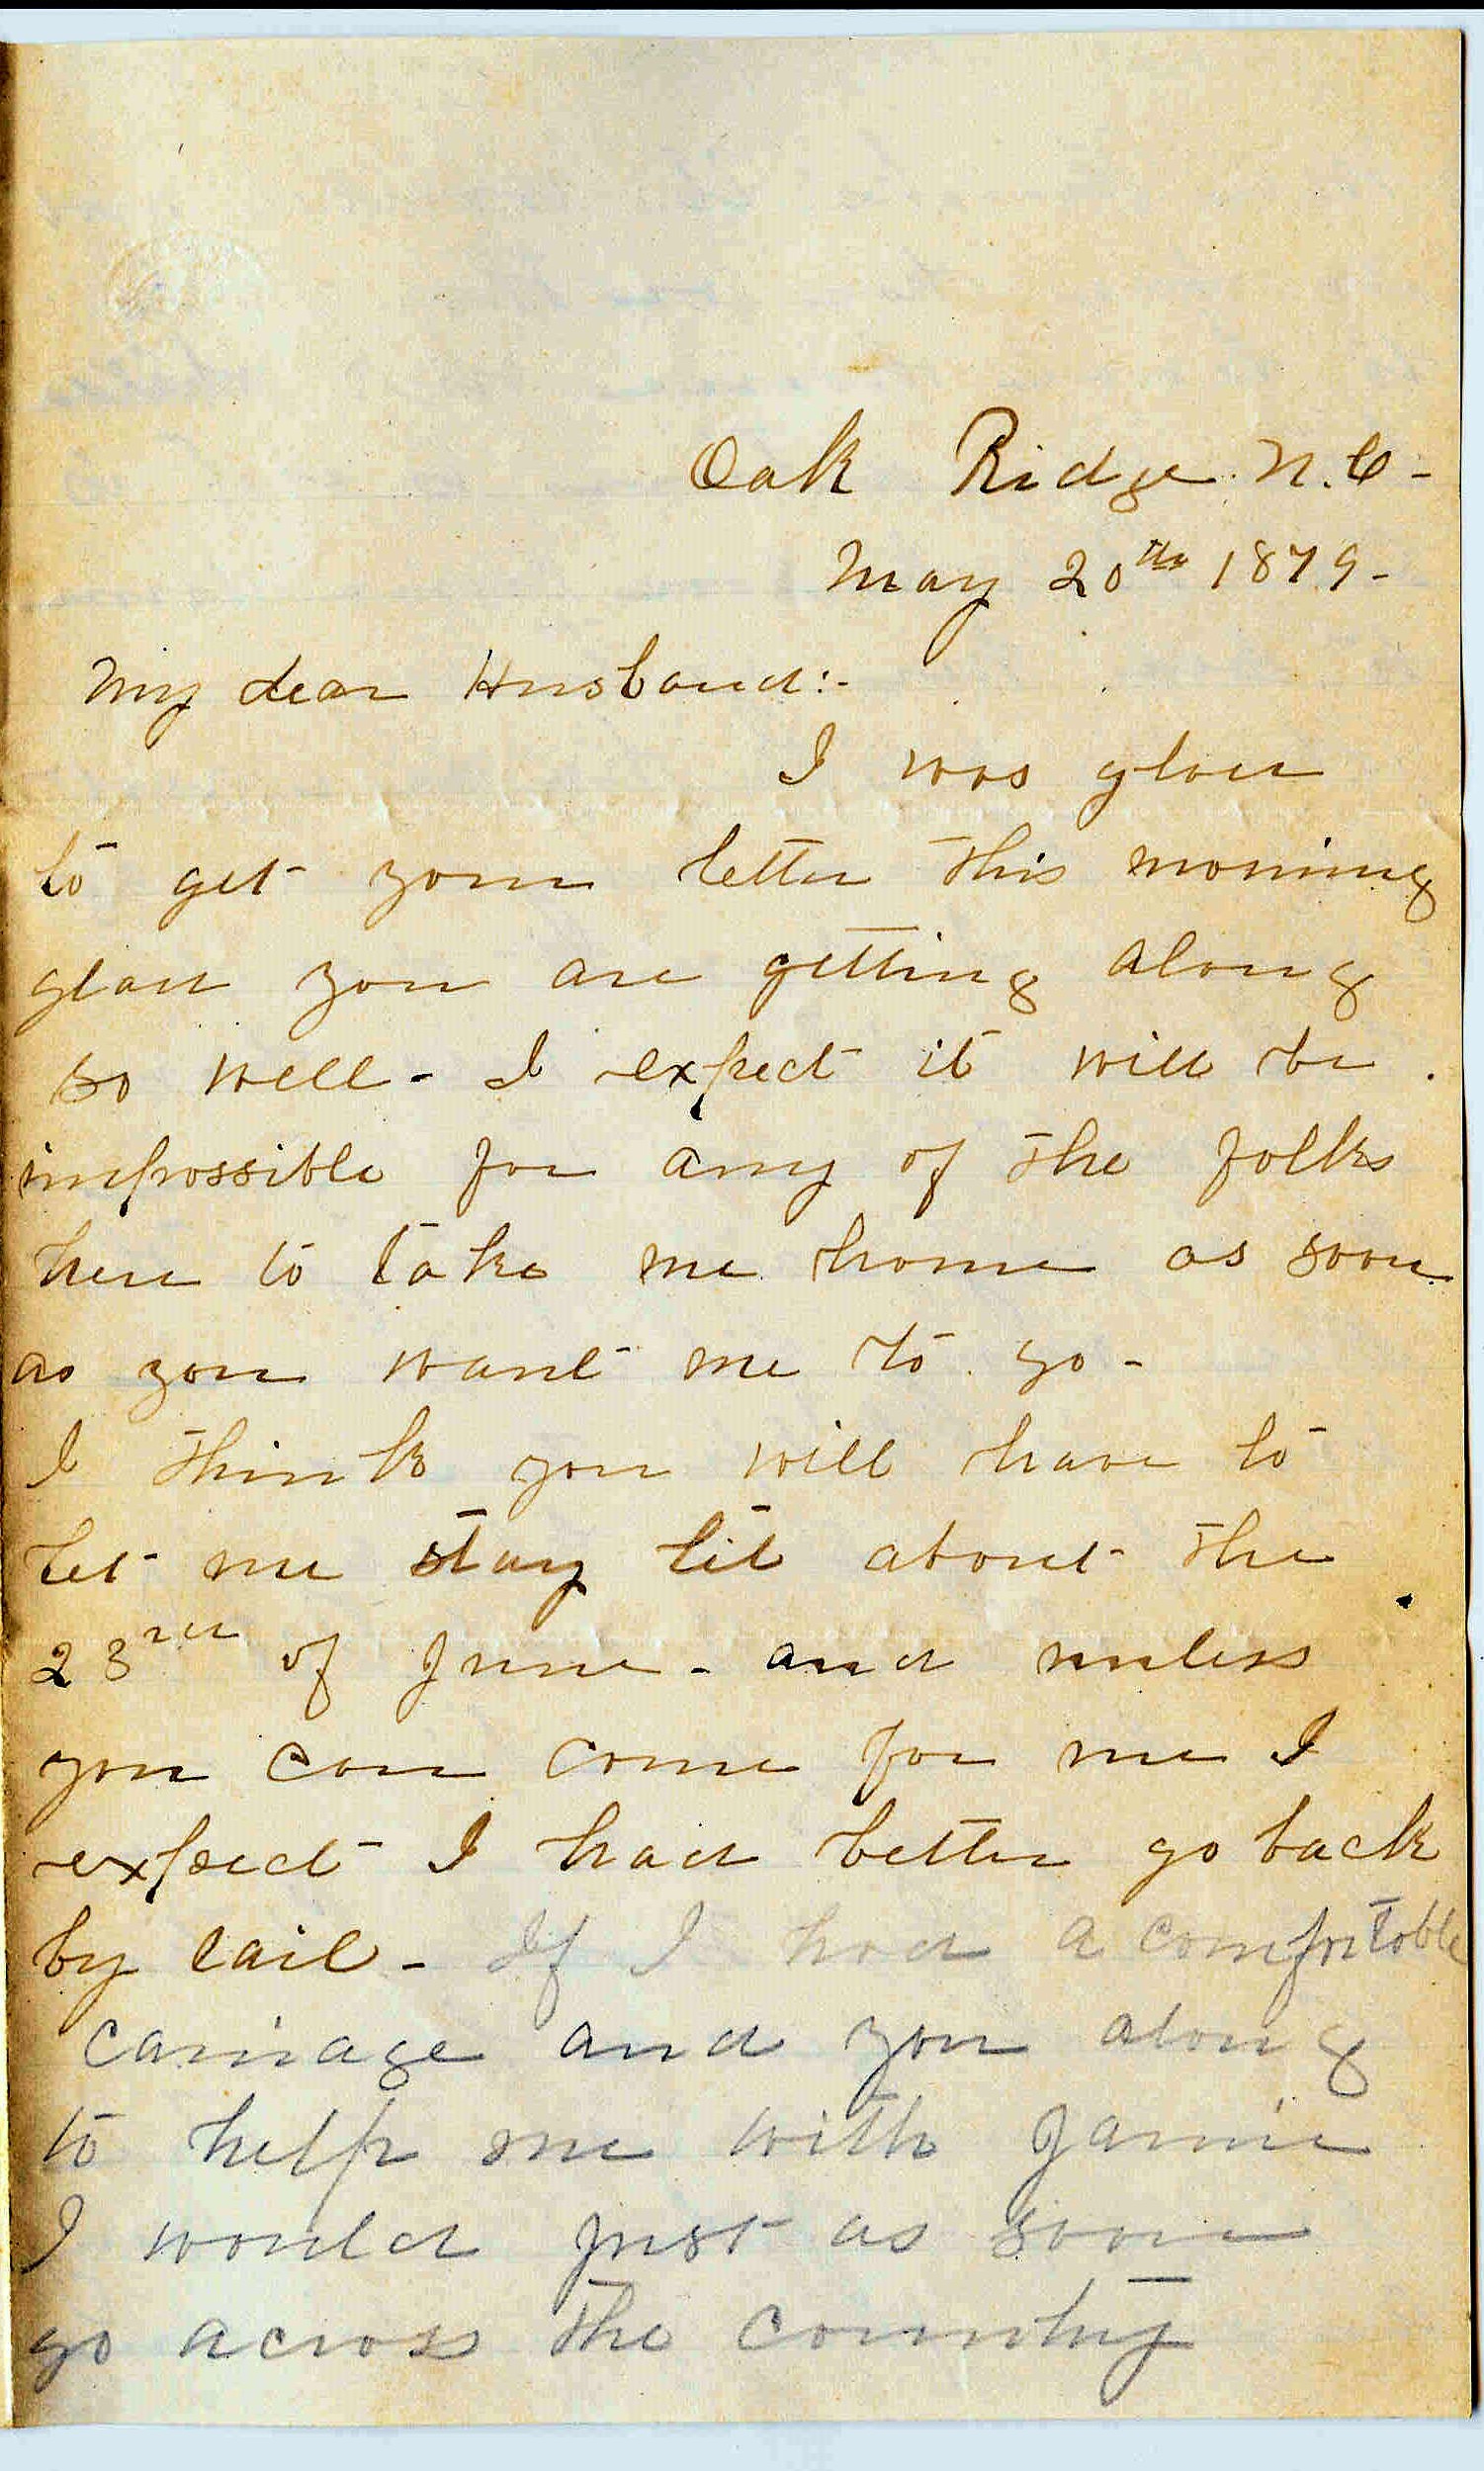 Oak Ridge N.C-
May 20th 1879-
My dear Husband:-
I was glad
to get your letter this morning
glad you are getting along
so well- I expect it will be
impossible for any of the folks
here to take me home as soon
as you want me to go-
I think you will have to
let me stay til about the
23rd of June- and unless
you can come for me I
expect I had better go back
by rail- If I had a comfortable
carriage and you along
to help me with Jamie
I would just as soon
go across the country